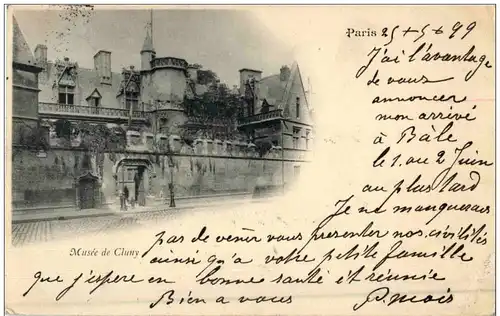 Paris 25 + 5 + 99
J'ai l'avantage
de vous
annoncer
mon arrivé
à Bâle
le 1. au 2 Juin
au plus tard
Je ne manquerais
pas de venir vous presenter nos civilités
Musée de Cluny
ainsi qu'a votre petite famille
que j'espere en bonne santé et réunie
Bien a vous